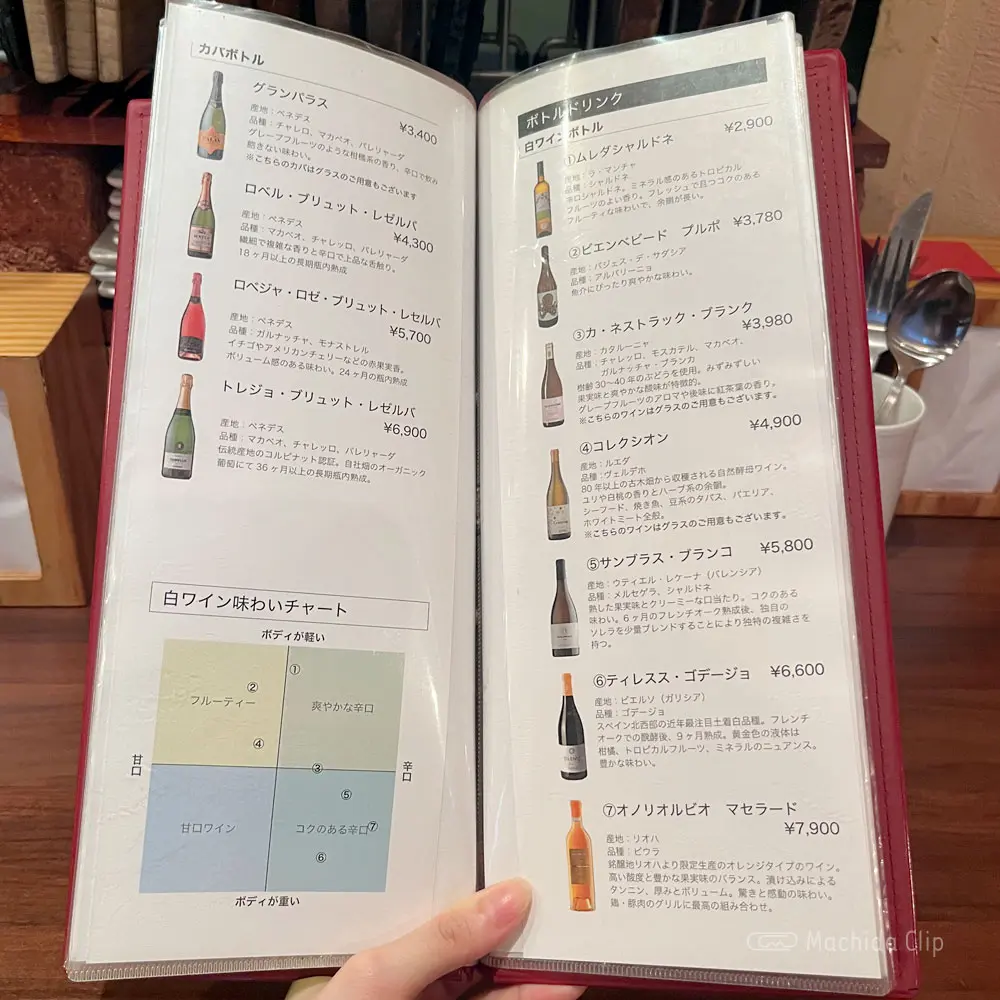 カバボトル
グランバラス
¥3,400
産地：ペネデス
品種：チャレロ、マカベオ、パレリャーダ
グレープフルーツのような柑橘系の香り、辛口で飲み
飽きない味わい。
※こちらのカバはグラスのご用意もございます
ロベル・ブリュット・レゼルバ
¥4,300
産地：ペネデス
品種：マカベオ、チャレッロ、パレリャーダ
繊細で複雑な香りと辛口で上品な舌触り。
18ヶ月以上の長期瓶内熟成
ロベジャ・ロゼ・ブリュット・レセルバ
¥5,700
産地：ペネデス
品種：ガルナッチャ、モナストレル
イチゴやアメリカンチェリーなどの赤果実香。
ボリューム感のある味わい。24ヶ月の瓶内熟成
トレジョ・ブリュット・レゼルバ
¥6,900
産地：ペネデス
品種：マカベオ、チャレッロ、パレリャーダ
伝統産地のコルピナット認証。自社畑のオーガニック
葡萄にて36ヶ月以上の長期瓶内熟成。
白ワイン味わいチャート
ボディが軽い
①
②
フルーティー
爽やかな辛口
④
甘口
辛口
③
⑤
甘口ワイン
コクのある辛口
⑦
⑥
ボディが重い
ボトルドリンク
白ワインボトル
¥2,900
①ムレダシャルドネ
産地：ラ・マンチャ
品種：シャルドネ
辛口シャルドネ。ミネラル感のあるトロピカル
フルーツのよい香り。フレッシュで且つコクのある
フルーティな味わいで、余韻が長い。
②ビエンベビード　プルポ　¥3,780
産地：パジェス・デ・サダシア
品種：アルバリーニョ
魚介にぴったり爽やかな味わい。
③カ・ネストラック・ブランク
¥3,980
産地：カタルーニャ
品種：チャレッロ、モスカテル、マカベオ、
ガルナッチャ・ブランカ
樹齢30〜40年のぶどうを使用。みずみずしい
果実味と爽やかな酸味が特徴的。
グレープフルーツのアロマや後味に紅茶葉の香り。
※こちらのワインはグラスのご用意もございます。
¥4,900
④コレクシオン
産地：ルエダ
品種：ヴェルデホ
80年以上の古木畑から収穫される自然酵母ワイン。
ユリや白桃の香りとハーブ系の余韻。
シーフード、焼き魚、豆系のタパス、パエリア、
ホワイトミート全般。
※こちらのワインはグラスのご用意もございます。
⑤サンブラス・ブランコ　¥5,800
産地：ウティエル・レケーナ（バレンシア）
品種：メルセゲラ、シャルドネ
熟した果実味とクリーミーな口当たり。コクのある
味わい。6ヶ月のフレンチオーク熟成後、独自の
ソレラを少量ブレンドすることにより独特の複雑さを
持つ。
⑥ティレスス・ゴデージョ　¥6,600
産地：ビエルソ（ガリシア）
品種：ゴデージョ
スペイン北西部の近年最注目土着白品種。フレンチ
オークでの醗酵後、9ヶ月熟成。黄金色の液体は
柑橘、トロピカルフルーツ、ミネラルのニュアンス。
豊かな味わい。
⑦オノリオルビオ　マセラード
¥7,900
産地：リオハ
品種：ビウラ
銘醸地リオハより限定生産のオレンジタイプのワイン。
高い酸度と豊かな果実味のバランス。漬け込みによる
タンニン、厚みとボリューム。驚きと感動の味わい。
鶏・豚肉のグリルに最高の組み合わせ。
Machida Clip